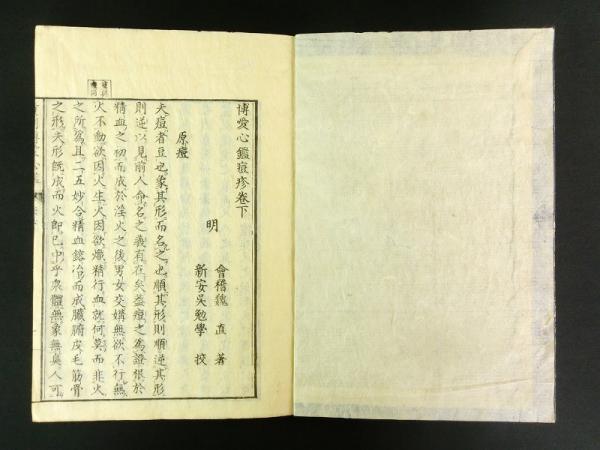 博愛心鑑痘疹卷下
明
會稽魏 直 著
新安吳勉學 校
原痘
夫痘者豆也象其形而名之也順其形則順逆其形
則逆以見前人命名之義有在矣蓋痘之爲證根於
精血之初而成於淫火之後男女交媾無欲不行無
火不動欲因火生火因欲熾精行血就何莫而非火
之所爲且二五妙合精血鎔冶而成臟腑皮毛筋骨
之形夫形旣成而火卽已中乎衆體無象無臭人可